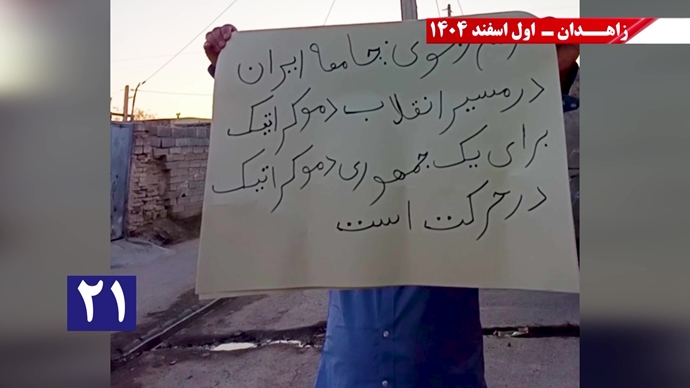 زاهدان - اول اسفند ۱۴۰۴
رجوی: جامعه ایران
در مسیر انقلاب دموکراتیک
برای یک جمهوری دموکراتیک
در حرکت است
۲۱